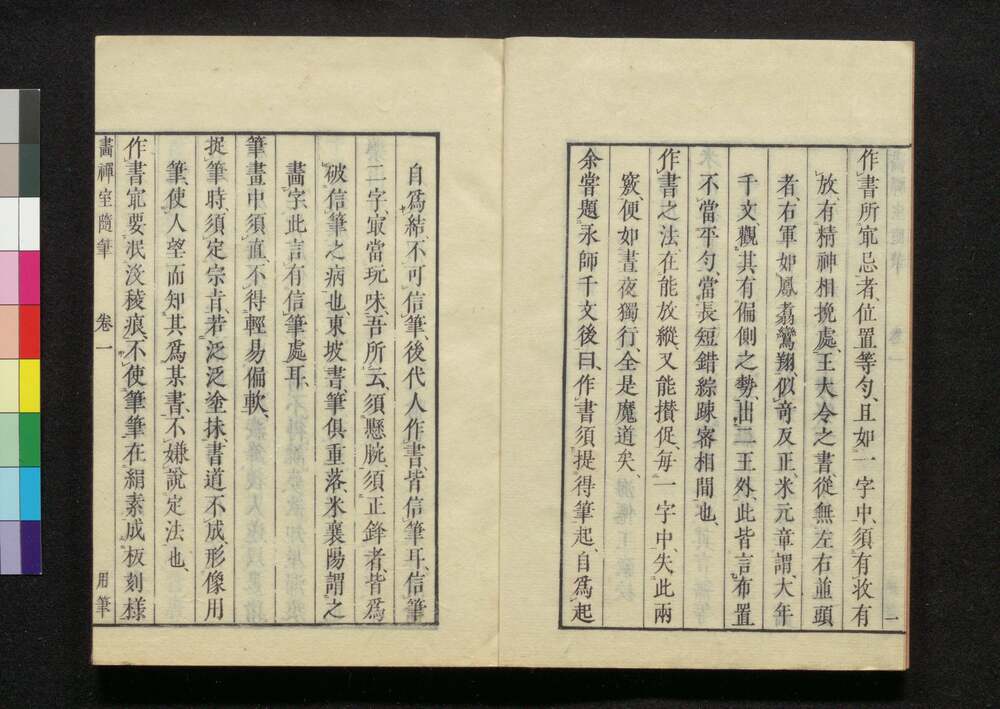 作書所㝡忌者、位置等勻、且如一字中、須有收有
放、有精神相挽處、王大令之書、從無左右並頭
者、右軍如鳳翥鸞翔、似奇反正、米元章謂、大年
千文、觀其有偏側之勢、出二王外、此皆言布置
不當平勻、當長短錯綜、疎密相間也、
作書之法、在能放縱、又能攅促、每一字中、失此兩
竅、便如晝夜獨行、全是魔道矣、
余嘗題永師千文後曰、作書須提得筆起、自爲起
自爲結、不可信筆、後代人作書、皆信筆耳、信筆
二字、㝡當玩味、吾所云、須懸腕、須正鋒者、皆爲
破信筆之病也、東坡書、筆俱重落、米襄陽謂之
畵字、此言有信筆處耳、
筆畫中須直、不得輕易偏軟、
捉筆時、須定宗旨、若泛泛塗抹、書道不成、形像用
筆、使人望而知其爲某書、不嫌說定法也、
作書㝡要泯沒稜痕、不使筆筆在絹素成板刻樣
畵禪室隨筆 卷一 用筆